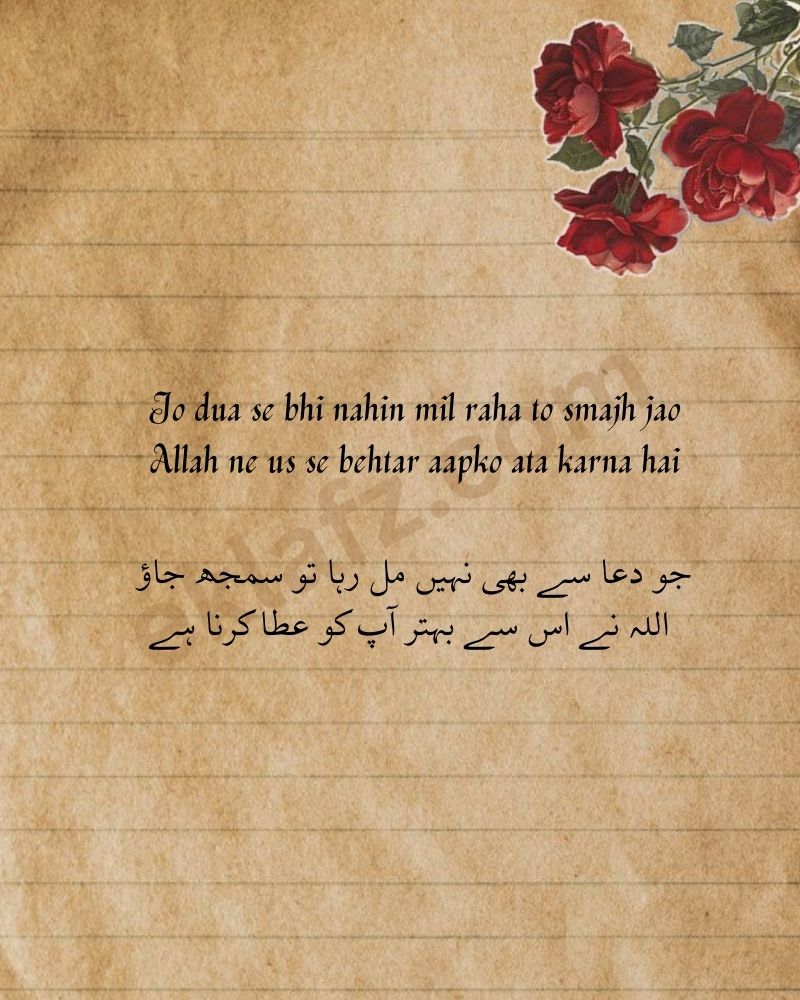 Jo dua se bhi nahin mil raha to smajh jao
Allah ne us se behtar aapko ata karna hai
جو دعا سے بھی نہیں مل رہا تو سمجھ جاؤ
اللہ نے اس سے بہتر آپ کو عطا کرنا ہے